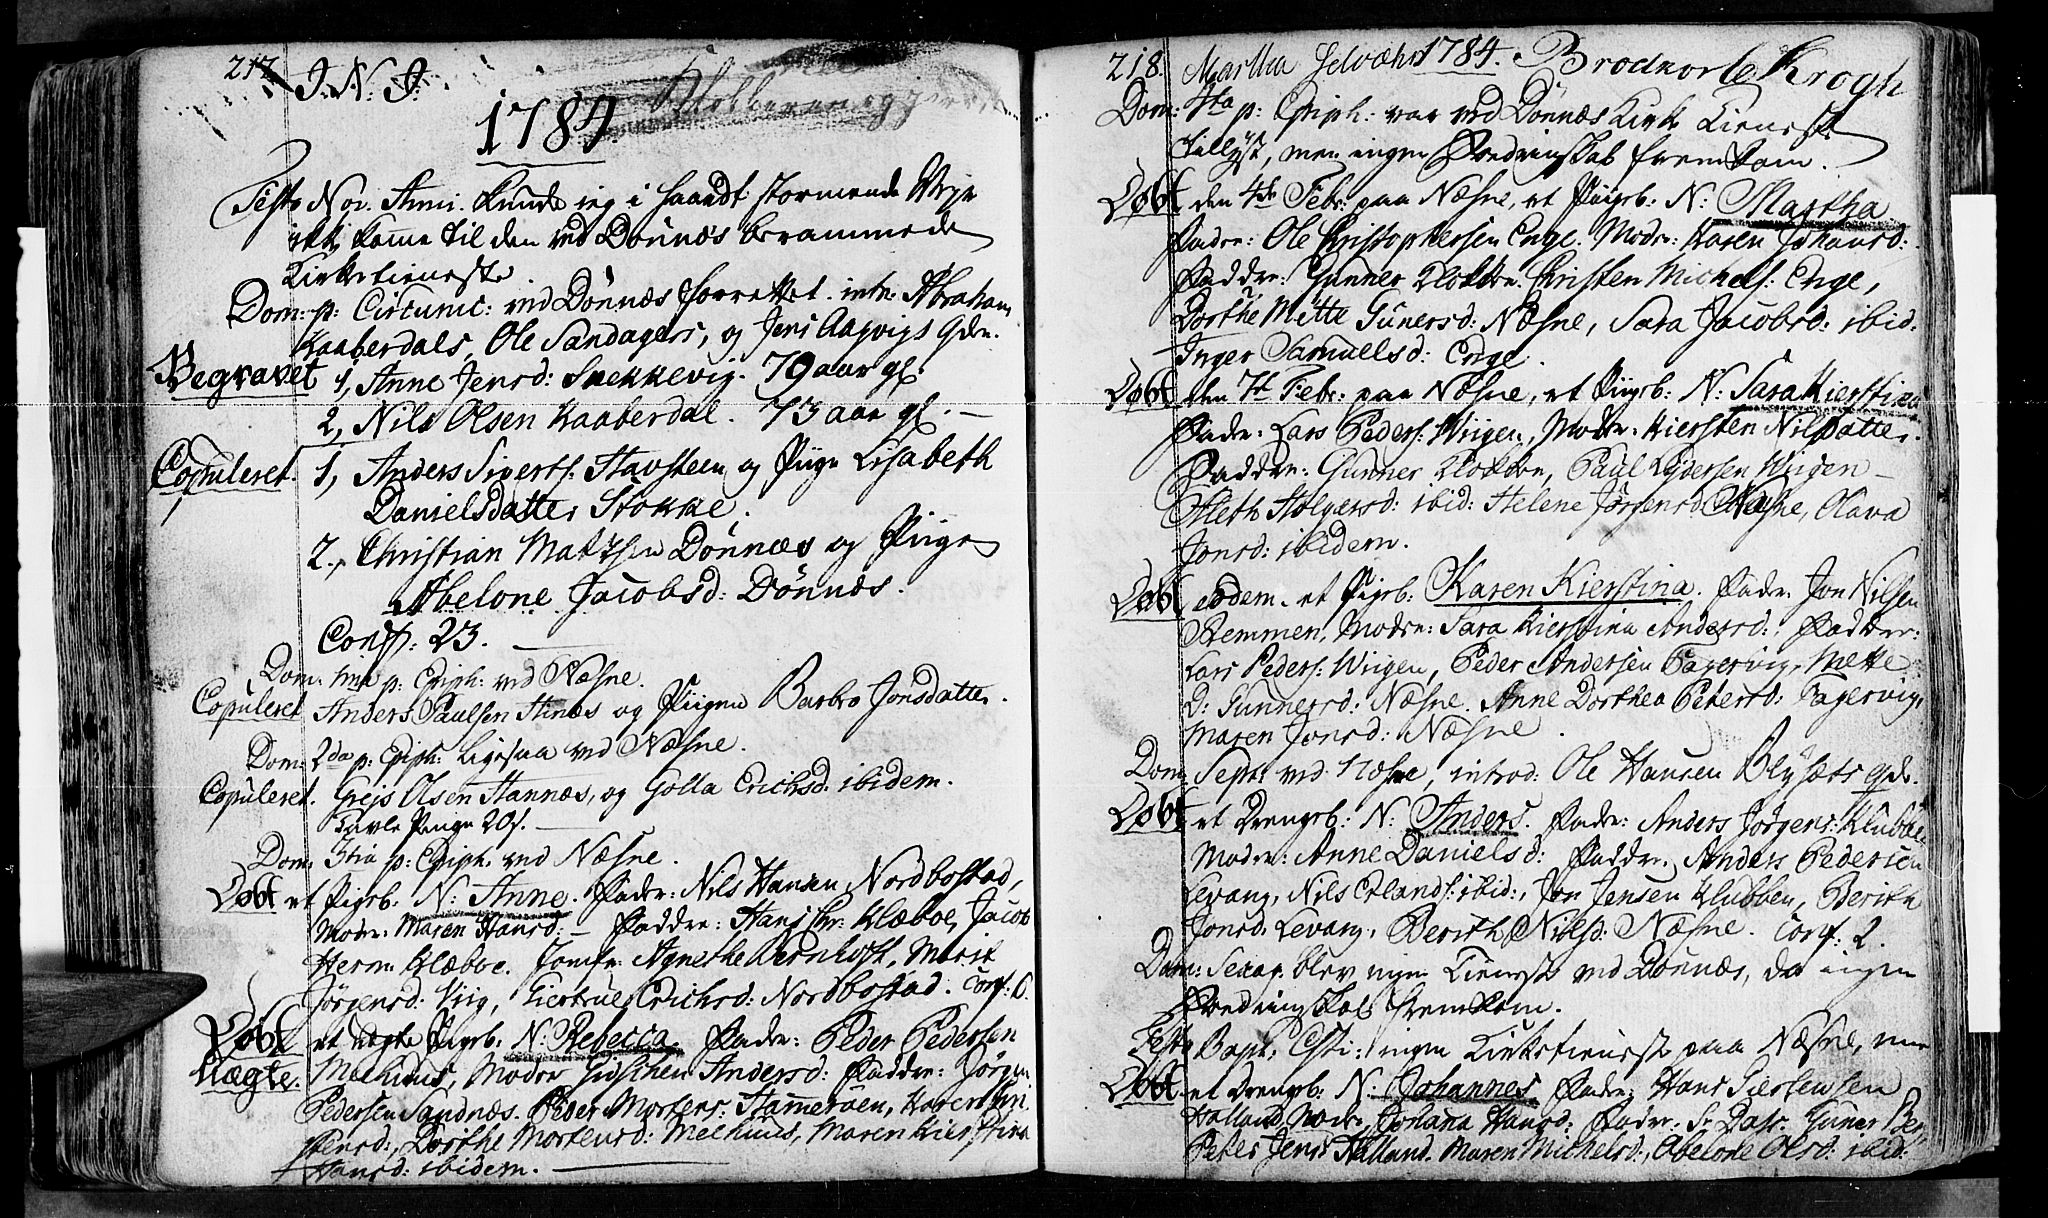 217.
J. N. J.
1784
Festo Nov. Anni. kunde jeg i haardt stormende Vejr
ikke komme til den ved Dönnæs berammede
Kirketieneste.
Dom: p: Circumc: ved Dönnæs forrettet. intr: Abraham
Kaaberdals, Ole Sandagers, og Jens Aagvigs qdr.
Begravet 1, Anne Jensd: Snekkevig. 79 aar gl.
2, Nils Olsen Kaaberdal. 73 aar gl. —
Copuleret. 1, Anders Siverts: Stavsteen og Piige Lisabeth
Danielsdatter Stokke.
2., Christian Matzsen Dönnæs og Piige
Abelone Jacobsd: Dönnæs.
Conf: 23.
Dom: 1ma p: Epiph: ved Næsne.
Copuleret Anders Paulsen Stinæs og Piigen Barbro Jonsdatter.
Dom: 2da p: Epiph: Ligesaa ved Næsne.
Copuleret. Grejs Olsen Hannæs, og Golla Erichsd: ibidem.
Tavle Penge 20 s.
Dom: 3tia p: Epiph: ved Næsne.
Døbt et Pigeb: N: Anne. Fader: Nils Hansen Nordbostad,
Moder: Maren Hansd: — Faddre: Hans Chr: Klæboe, Jacob
Herm: Klæboe. Jomfr: Agnethe Bernhoft, Marit
Jörgensd: Viig, Giertrue Erichsd: Nordbostad. Conf: 6.
Døbt et uægte Pigeb: N: Rebecca. Fader: Peder Pedersen
uægte. Meehuus, Moder Gidschen Andersd: Faddre: Jörgen
Pedersen Sandnæs. Peder Mortens: Hammerøen, Karen Chri
stensd:, Dorthe Mortensd: Meehuus, Maren Kierstina
Hansd: ibidem.
218. Martha Selvæhr 1784. Brodkorb Krogh
Dom: 4ta p: Epiph: var ved Dönnæs Kirke Tieneste
tillyst, men ingen Foredrinskab fremkom.
Døbt den 4de Febr: paa Næsne, et Piigeb: N: Martha
Fader: Ole Christophersen Enge. Moder: Karen Johansd:
Faddre: Gunner Klokker. Christen Michels: Enge,
Dorthe Mitte Gunersd: Næsne, Sara Jacobsd: ibid.
Inger Samuelsd: Enge.
Døbt den 7de Febr: paa Næsne, et Pigeb: N: Sara Kierstina
Fader: Lars Peders: Wiigen, Moder: Kiersten Nilsdatter.
Faddre: Gunner Klokker, Paul Pedersen Wiigen —
Aleth Holgersd: ibid: Helene Jörgensd: Næsne, Olava
Jonsd: ibidem.
Døbt eodem. et Pigeb: Karen Kierstina. Fader: Jon Nilsen
Remmen, Moder: Sara Kierstina Andersd: Faddre:
Lars Peders: Wiigen, Peder Andersen Fagervig, Mette
D: Gunnersd: Næsne. Anne Dorthea Petersd: Fagervig,
Maren Jonsd: Næsne.
Dom: Sept: ved Næsne, introd: Ole Hansen Blysæts qdr.
Døbt et Drengeb: N: Anders. Fader: Anders Jörgens: Klubben
Moder: Anne Danielsd: Faddre: Anders Pedersen
Levang, Nils Erlands: ibid:, Jon Jensen Klubben, Berith
Jonsd: Levang, Berith Nilsd: Næsne. Conf: 2.
Dom: Sexag: blev ingen Tieneste ved Dönnæs, da ingen
Foredrinskab fremkom.
Festo Bapt: Csti: ingen Kirketieneste paa Næsne, men
Døbt et Drengeb: N: Johannes. Fader: Hans Giertsensen
Halland, Moder, Johanna Hansd: Faddre: Sr. Dass. Guner
Peter Jens: Halland. Maren Michelsd:, Abelone Olsd: ibid: